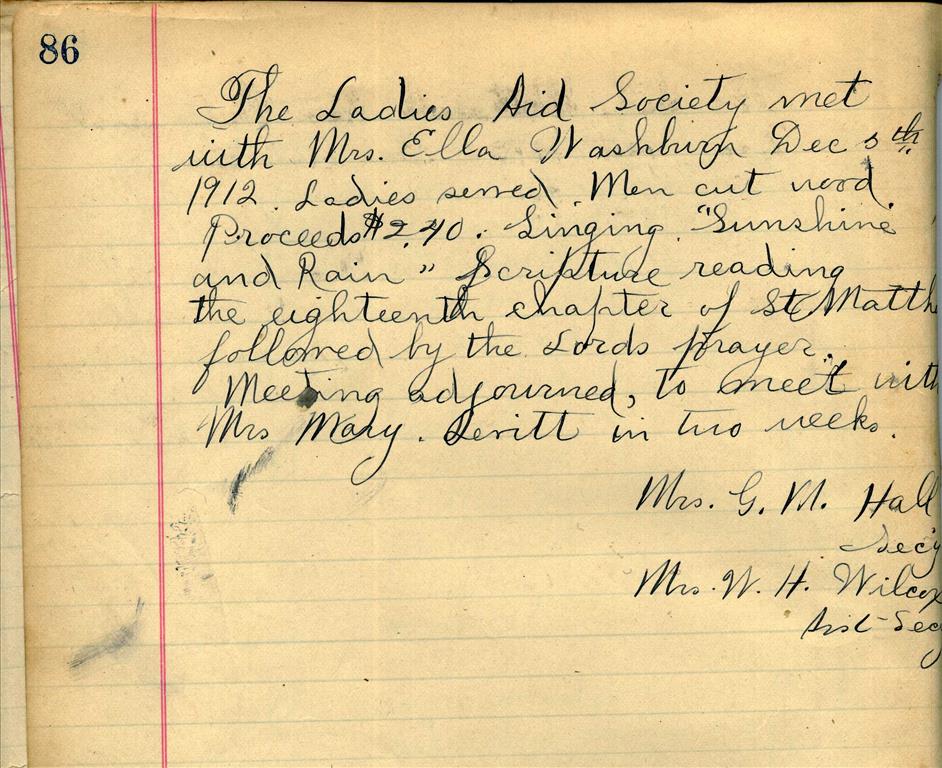 86
The Ladies Aid Society met
with Mrs. Ella Washburn Dec 5th
1912. Ladies served. Men cut wood
Proceeds $2.40. Singing. "Sunshine
and Rain" Scripture reading
the eighteenth chapter of St. Matthe
followed by the Lords prayer.
Meeting adjourned, to meet with
Mrs Mary. Levitt in two weeks.
Mrs. G. M. Hall
Sec'y
Mrs. W. H. Wilcox
Asst-Secy